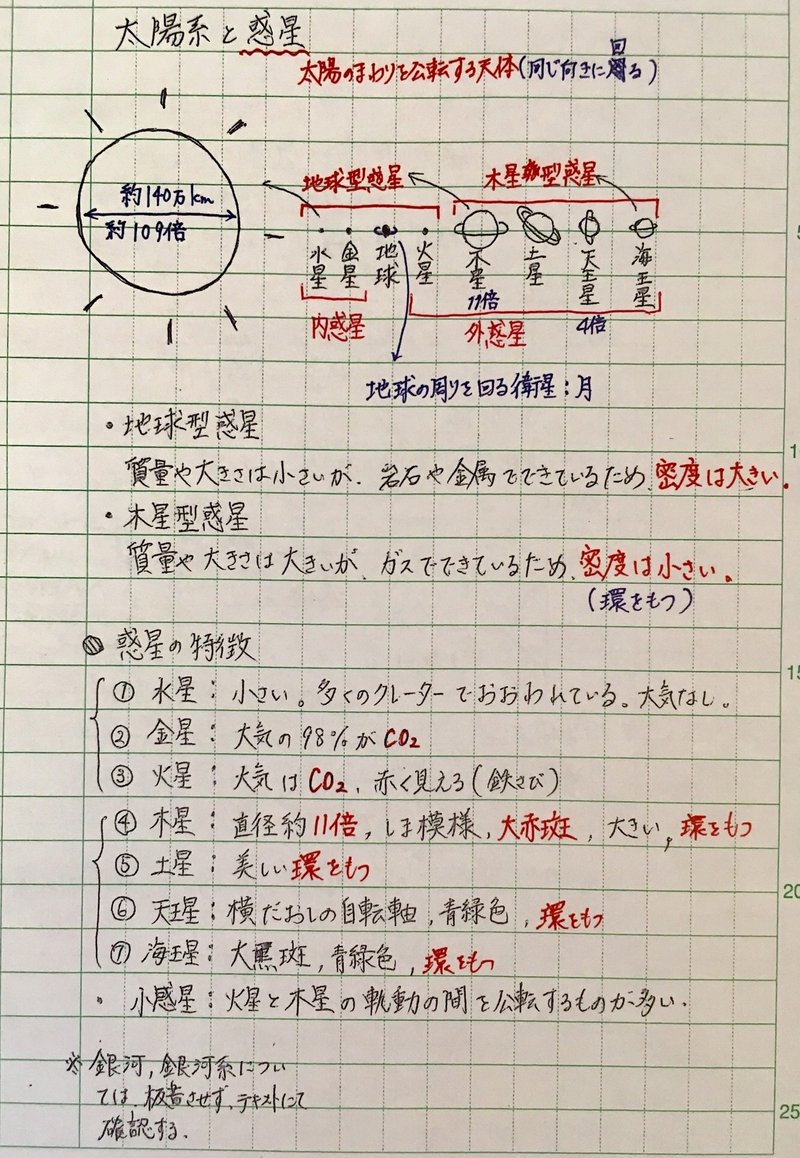 太陽系と惑星
太陽のまわりを公転する天体(同じ向きに回る)
約140万km
約109倍
地球型惑星
木星型惑星
水星
金星
地球
火星
木星
土星
天王星
海王星
11倍
4倍
内惑星
外惑星
地球の周りを回る衛星:月
・地球型惑星
質量や大きさは小さいが、岩石や金属でできているため、密度は大きい。
・木星型惑星
質量や大きさは大きいが、ガスでできているため、密度は小さい。
(環をもつ)
惑星の特徴
① 水星:小さい。多くのクレーターでおおわれている。大気なし。
② 金星:大気の98%がCO2
③ 火星:大気はCO2、赤く見える(鉄さび)
④ 木星:直径約11倍,しま模様,大赤斑,大きい,環をもつ
⑤ 土星:美しい環をもつ
⑥ 天王星:横だおしの自転軸,青緑色,環をもつ
⑦ 海王星:大黒斑,青緑色,環をもつ
・小惑星:火星と木星の軌動の間を公転するものが多い.
※銀河,銀河系につい
ては、板書させず、テキストにて
確認する.
5
10
15
20
25